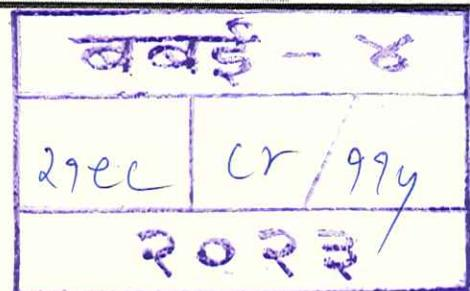 बबई - ४
२१९८ ८४ / ११५
२०२३